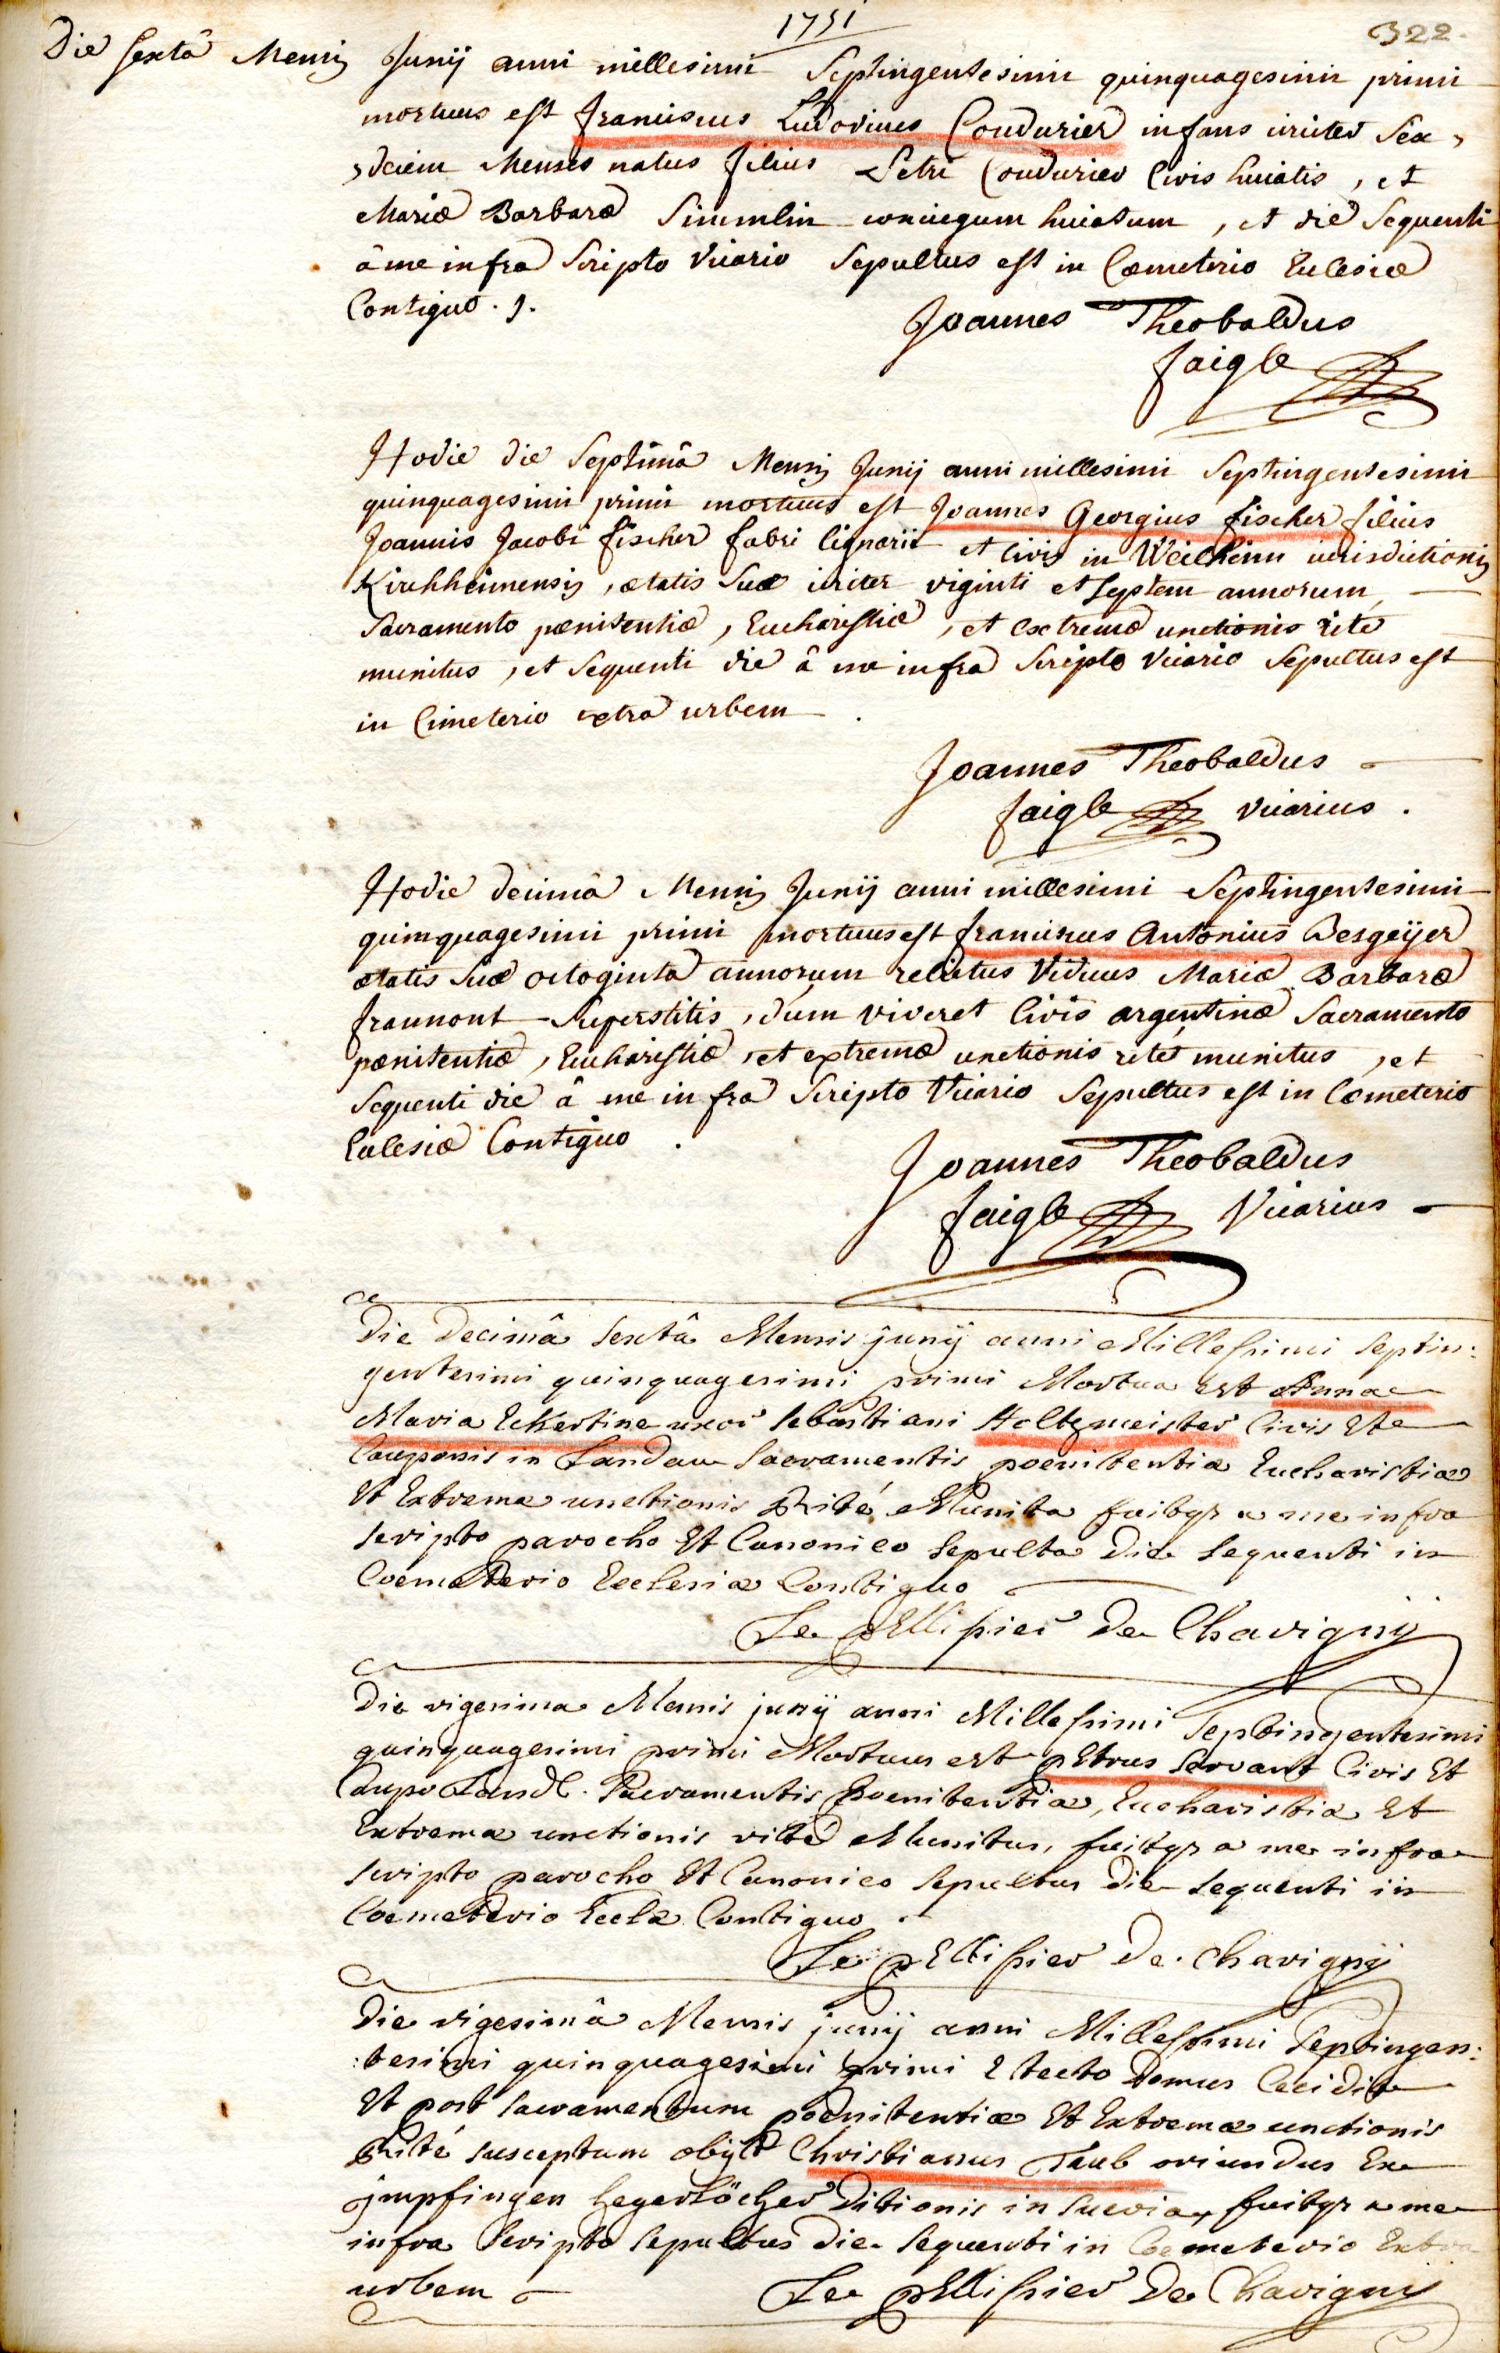 1751
322.
Die sextâ Mensis Junij anni millesimi Septingentesimi quinquagesimi primi
mortuus est franciscus Ludovicus Coudurier infans circiter Sex,
,decim Menses natus filius Petri Coudurier Civis huiatis, et
Mariæ Barbaræ Simmlin coniugum huiatum, et die Sequenti
â me infra Scripto Vicario Sepultus est in Cœmeterio Ecclesiæ
Contiguo. J.
Joannes Theobaldus
faigle
Hodie die Septimâ Mensis Junij anni millesimi Septingentesimi
quinquagesimi primi mortuus est Joannes Georgius fischer filius
Joannis Jacobi fischer fabri lignarii et Civis in Weilheim iurisdictionis
Kirchheimensis, ætatis Suæ circiter viginti et septem annorum,
Sacramento pœnitentiæ, Eucharistiæ, et extremæ unctionis rite
munitus, et Sequenti die â me infra Scripto Vicario Sepultus est
in Cimeterio extra urbem.
Joannes Theobaldus
faigle Vicarius.
Hodie decimâ Mensis Junij anni millesimi Septingentesimi
quinquagesimi primi mortuus est franciscus Antonius Desgeijer
ætatis Suæ octoginta annorum relictus Viduus Mariæ Barbaræ
fraumont Superstitis, dum viveret Civis argentinæ Sacramento
pœnitentiæ, Eucharistiæ, et extremæ unctionis rite munitus, et
Sequenti die â me infra Scripto Vicario Sepultus est in Cœmeterio
Ecclesiæ Contiguo.
Joannes Theobaldus
faigle Vicarius
Die Decimâ sextâ Mensis junij anni Millessimi septin:
gentesimi quinquagesimi primi Mortua est Anna
Maria Eckertine uxor sebastiani Holtzmeister Civis Et
Cauponis in Landau Sacramentis poenitentiæ Eucharistiæ
Et Extremæ unctionis Rité Munita fuitqr a me infra
scripto parocho Et Canonico Sepulta Die sequenti in
Coemeterio Ecclesiæ Contiguo
Le pEllissier De Chavignÿ
Die vigesima Mensis junij anni Millessimi Septingentesimi
quinquagesimi primi Mortuus est pEtrus servant Civis Et
Caupo Land. Sacramentis Poenitentiæ, Eucharistiæ Et
Extremæ unctionis rité Munitus, fuitqr a me infra
scripto parocho Et Canonico Sepultus Die sequenti in
Coemeterio Eccla Contiguo.
Le pEllissier De Chavignÿ
Die vigesimâ Mensis junij anni Millessimi Septingen:
:tesimi quinquagesimi primi E tecto Domus Cecidit
Et post sacramentum poenitentiæ Et Extremæ unctionis
Rité susceptum obijt Christianus Taub oriundus Ex
jmpfingen hegerlöcher Ditionis in Suevia, fuitqr a me
infra Scripto Sepultus Die sequenti in Coemeterio Extra
urbem
Le pEllissier De Chavignÿ